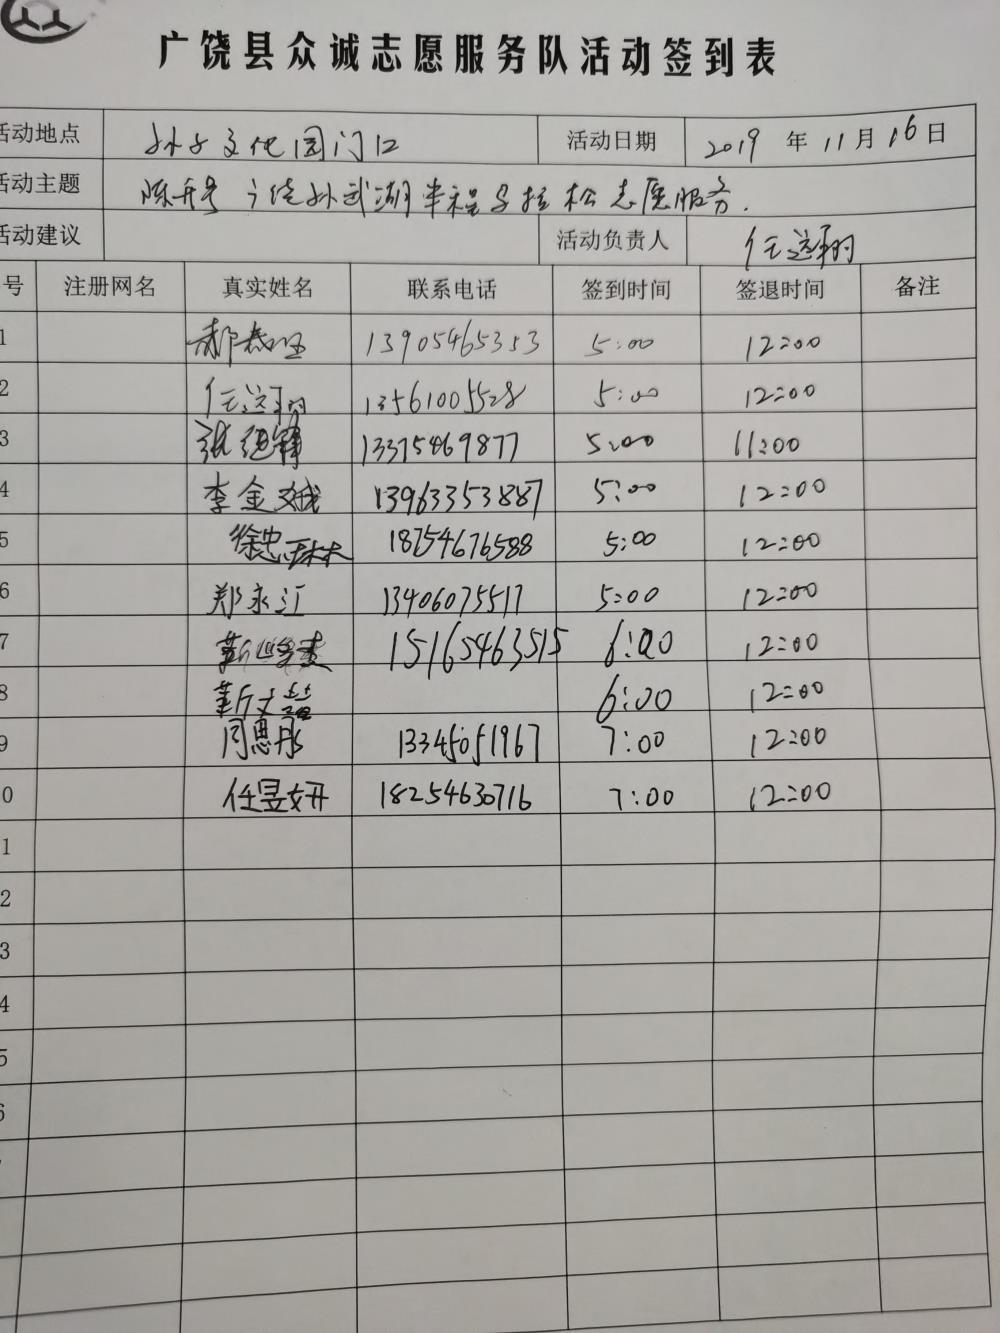 广饶县众诚志愿服务队活动签到表
活动地点 孙子文化园门口 活动日期 2019 年 11 月 16 日
活动主题 广饶孙武湖半程马拉松志愿服务.
活动建议 活动负责人 任
号 注册网名 真实姓名 联系电话 签到时间 签退时间 备注
1 郝 13905465353 5:00 12:00
2 任 13561005528 5:00 12:00
3 张继锋 13375469877 5:00 11:00
4 李金娥 13963353887 5:00 12:00
5 徐忠 18754676588 5:00 12:00
6 郑永江 13406075517 5:00 12:00
7 靳 15165463515 6:00 12:00
8 靳文喆 6:00 12:00
9 闫思彤 13345051967 7:00 12:00
0 任昱妍 18254630716 7:00 12:00
1
2
3
4
5
6